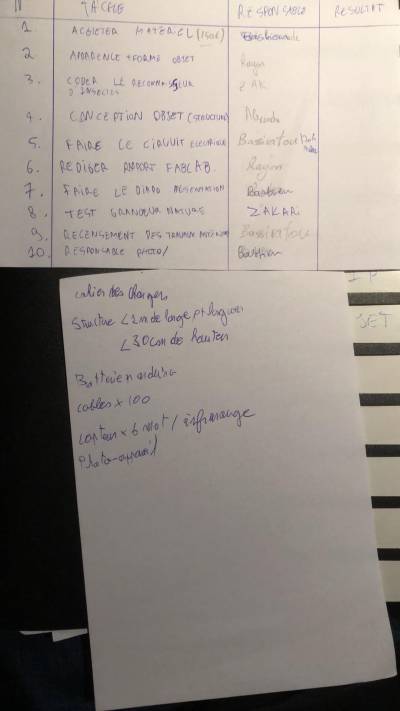 N TÂCHE RESPONSABLE RESULTAT
1 ACHETER MATERIEL (150€)
2 APPARENCE + FORME OBJET Rayan
3. CODER LE RECONNAISSEUR ZAK
D'INSECTES
4. CONCEPTION OBJET (STRUCTURE)
5. FAIRE LE CIRCUIT ELECTRIQUE
6. REDIGER RAPORT FABLAB. Rayan
7. FAIRE LE DIAPO PRESENTATION Bastien
8. TEST GRANDEUR NATURE ZAKARI
9. RECENSEMENT DES TRAVAUX
10. RESPONSABLE PHOTO/ Bastien
cahier des charges
Structure < 1m de large et longueur
< 30cm de hauteur
Batterie
cables x 100
capteur x 6 / infrarouge
Photo-appareil